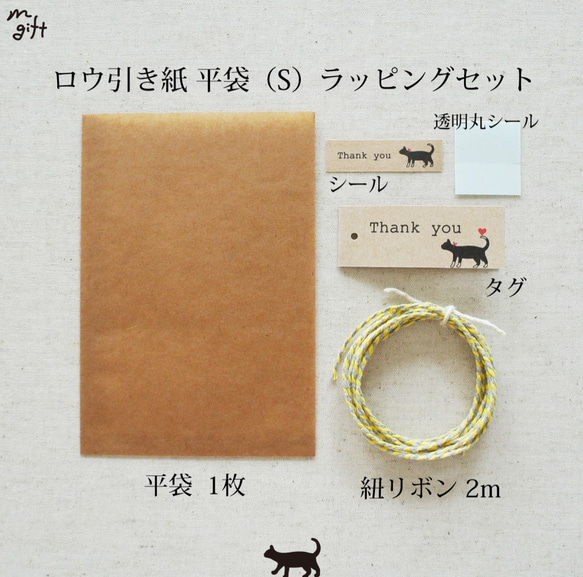 m
gift
ロウ引き紙 平袋（S）ラッピングセット
透明丸シール
Thank you
シール
Thank you
タグ
平袋 1枚
紐リボン 2m